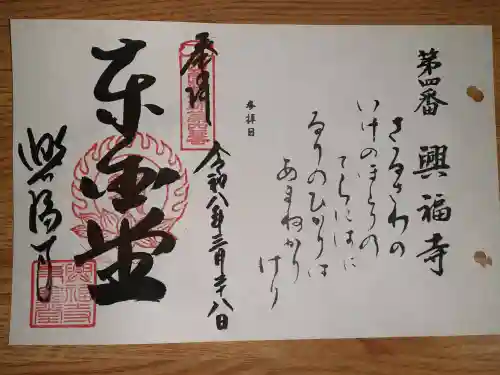 第四番 興福寺
さるさわの
いけのほとりの
てらにはに
るりのひかりは
あまねかり
けり
参拝日
奉拝
令和八年三月二十八日
東金堂
興福寺